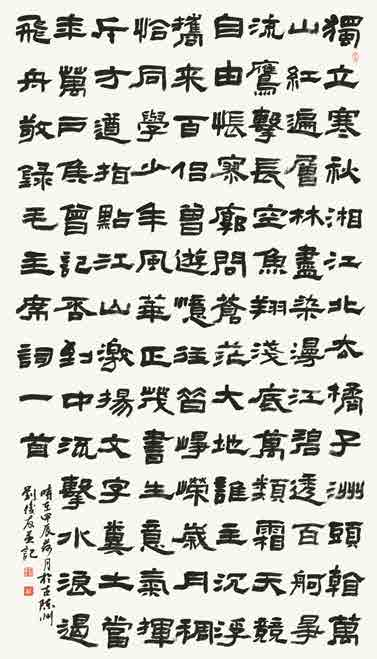 獨立寒秋湘江北去橘子洲頭看萬
山紅遍層林盡染漫江碧透百舸爭
流鷹擊長空魚翔淺底萬類霜天競
自由悵寥廓問蒼茫大地誰主沉浮
攜来百侣曾遊憶往昔崢嶸歲月稠
恰同學少年風華正茂書生意氣揮
斥方遒指點江山激揚文字糞土當
年萬戶侯曾記否到中流擊水浪遏
飛舟敬錄毛主席詞一首
時在甲辰荷月於古陳州
劉俊友記